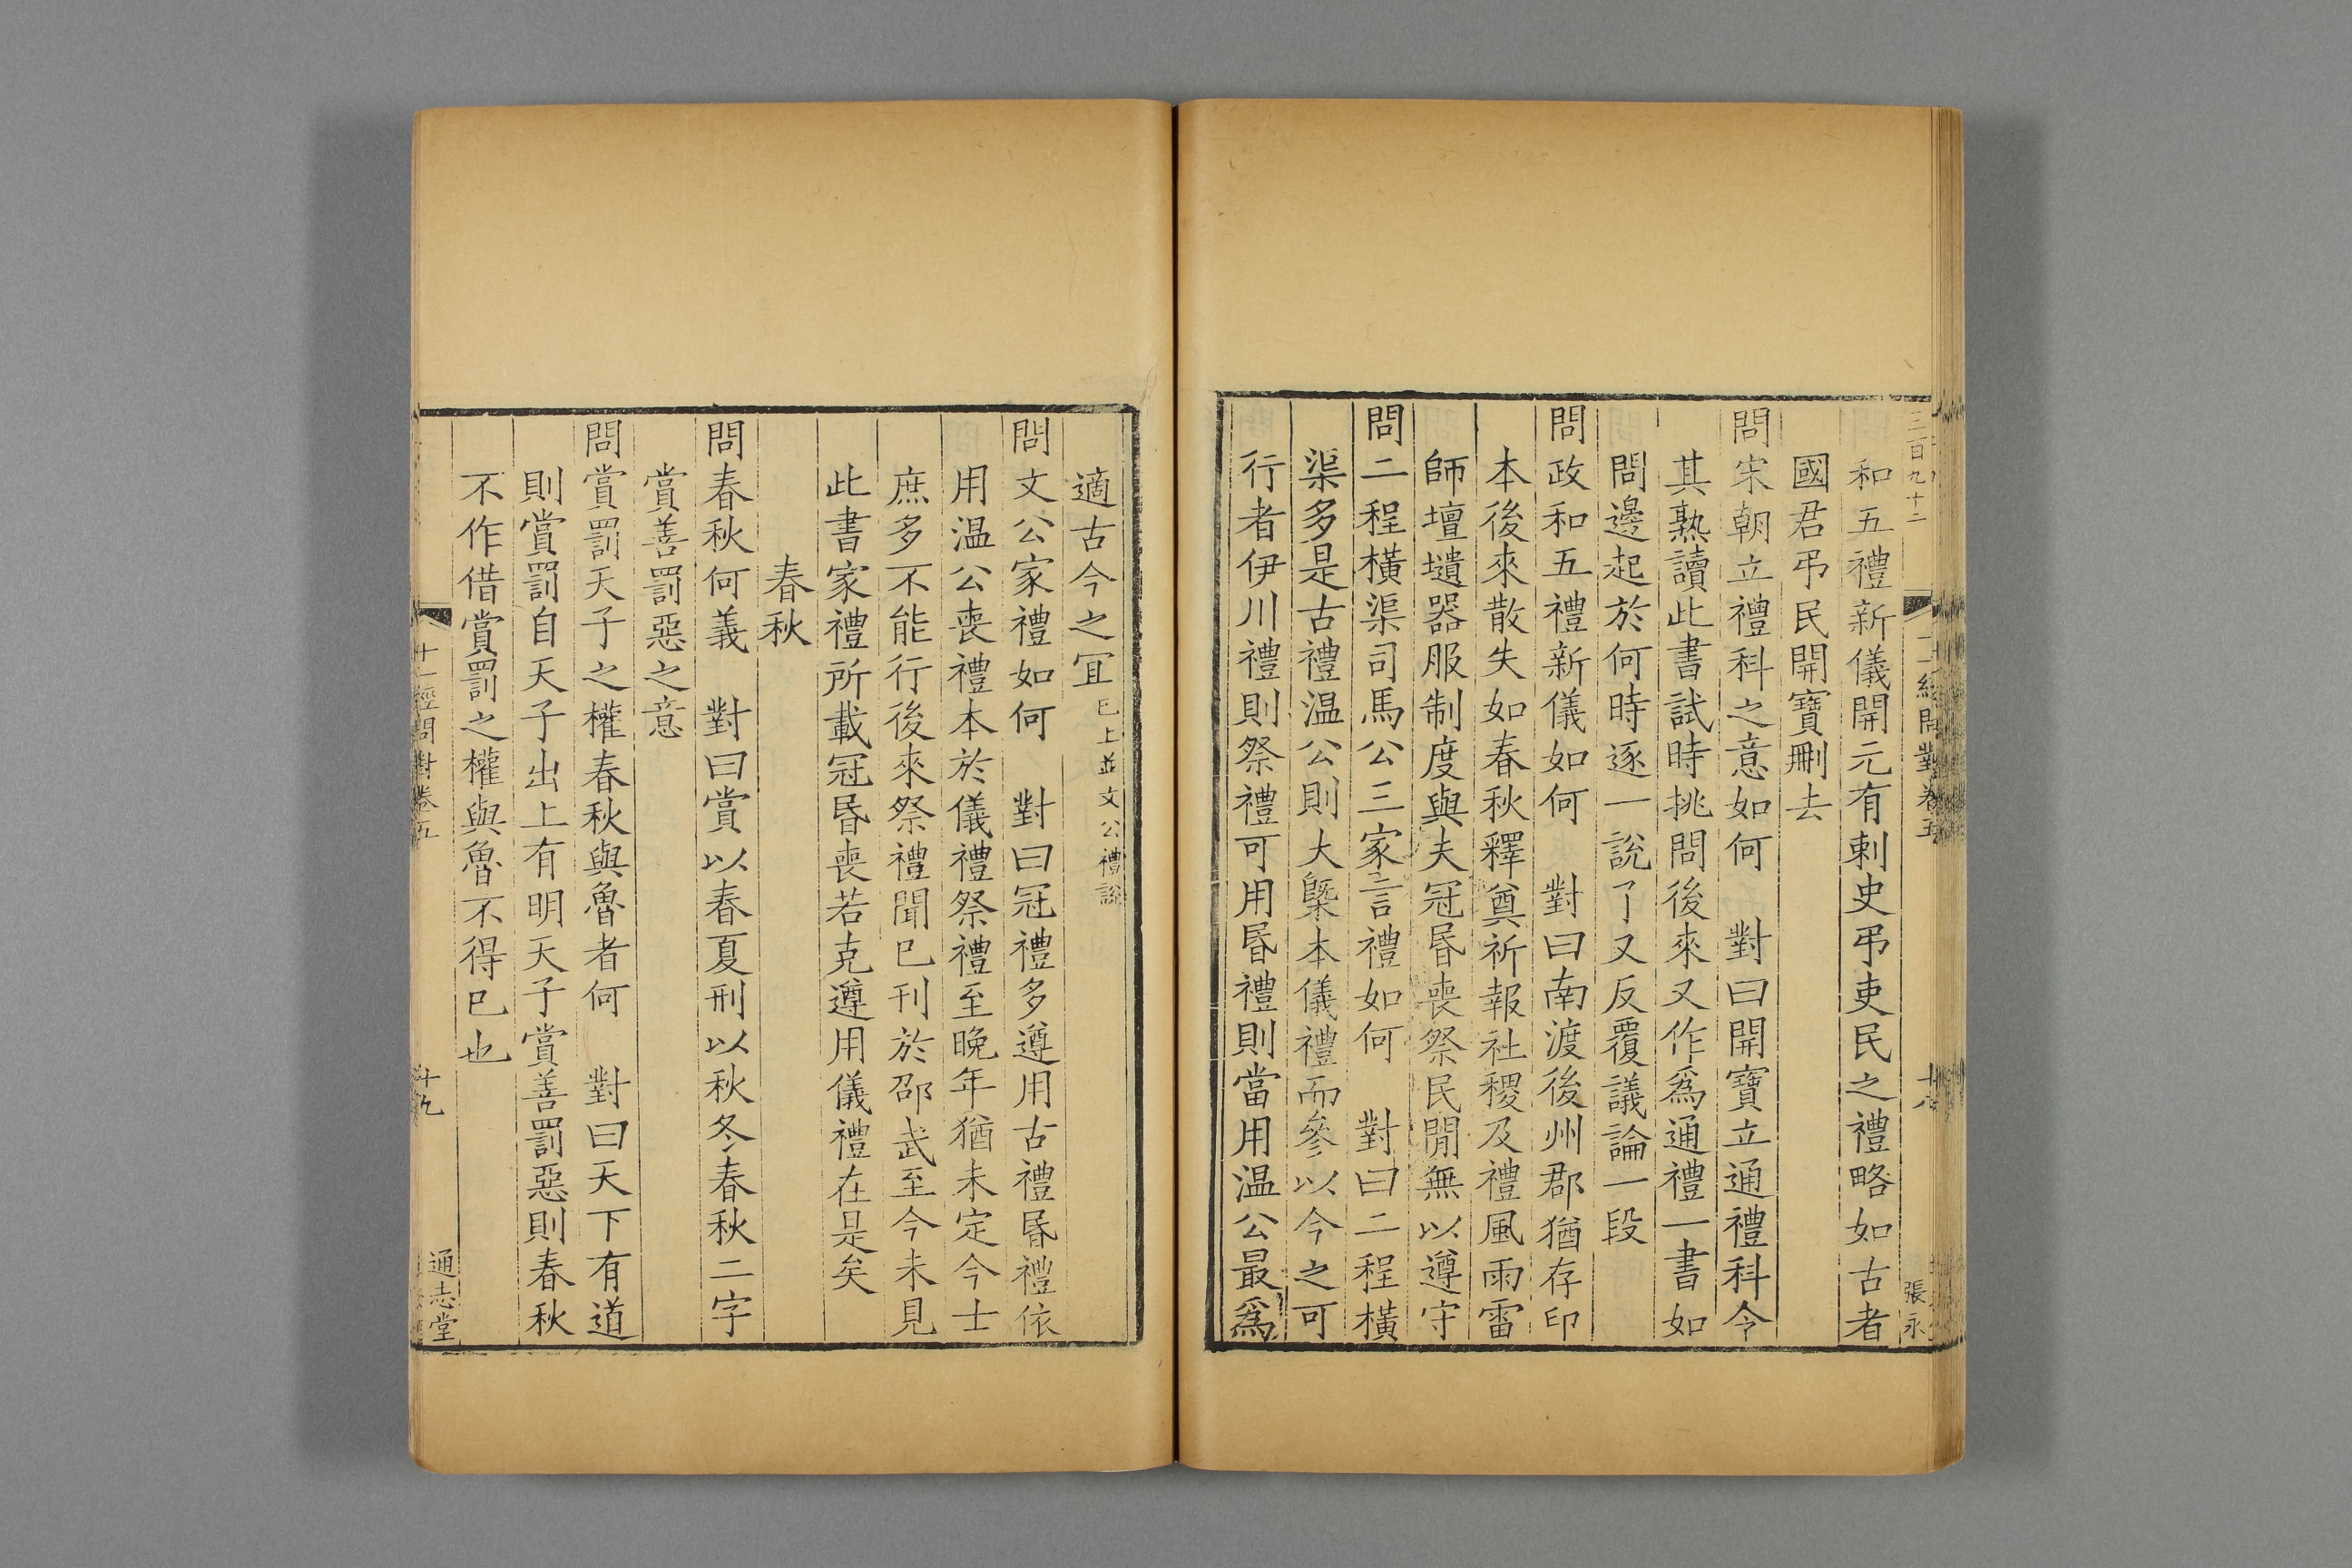 三百九十二
十一經問對卷五
十八
張永
和五禮新儀開元有刺史弔吏民之禮略如古者
國君弔民開寶刪去
問宋朝立禮科之意如何　對曰開寶立通禮科令
其熟讀此書試時挑問後來又作爲通禮一書如
問邊起於何時逐一說了又反覆議論一段
問政和五禮新儀如何　對曰南渡後州郡猶存印
本後來散失如春秋釋奠祈報社稷及禮風雨雷
師壇壝器服制度與夫冠昬喪祭民閒無以遵守
問二程橫渠司馬公三家言禮如何　對曰二程橫
渠多是古禮温公則大槩本儀禮而參以今之可
行者伊川禮則祭禮可用昬禮則當用温公最爲
適古今之冝巳上並文公禮說
問文公家禮如何　對曰冠禮多遵用古禮昬禮依
用温公喪禮本於儀禮祭禮至晚年猶未定今士
庶多不能行後來祭禮聞巳刊於邵武至今未見
此書家禮所載冠昬喪若克遵用儀禮在是矣
春秋
問春秋何義　對曰賞以春夏刑以秋冬春秋二字
賞善罰惡之意
問賞罰天子之權春秋與魯者何　對曰天下有道
則賞罰自天子出上有明天子賞善罰惡則春秋
不作借賞罰之權與魯不得巳也
十一經問對卷五
十九
通志堂